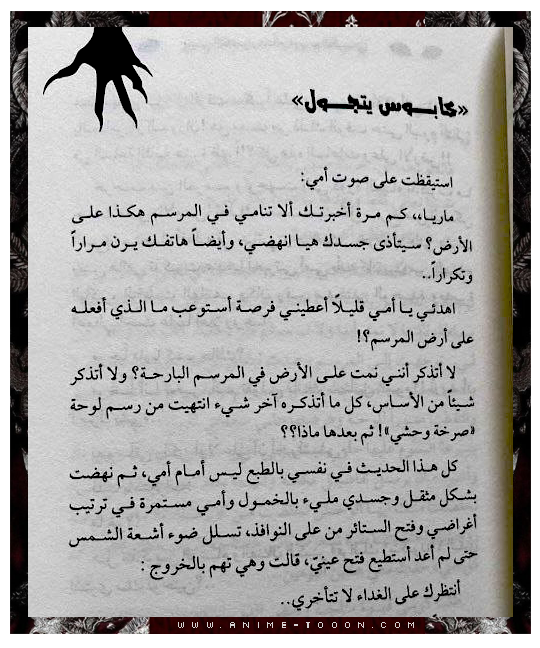 «كابوس يتجول»
استيقظت على صوت أمي:
ماريا،، كم مرة أخبرتك ألا تنامي في المرسم هكذا على
الأرض؟ سيتأذى جسدك هيا انهضي، وأيضاً هاتفك يرن مراراً
وتكراراً..
اهدئي يا أمي قليلًا أعطيني فرصة أستوعب ما الذي أفعله
على أرض المرسم؟!
لا أتذكر أنني نمت على الأرض في المرسم البارحة؟ ولا أتذكر
شيئاً من الأساس، كل ما أتذكره آخر شيء انتهيت من رسم لوحة
«صرخة وحشي»! ثم بعدها ماذا؟؟
كل هذا الحديث في نفسي بالطبع ليس أمام أمي، ثم نهضت
بشكل مثقل وجسدي مليء بالخمول وأمي مستمرة في ترتيب
أغراضي وفتح الستائر من على النوافذ، تسلل ضوء أشعة الشمس
حتى لم أعد أستطيع فتح عينيّ، قالت وهي تهم بالخروج :
أنتظرك على الغداء لا تتأخري..
WWW.ANIME-TOOON.COM